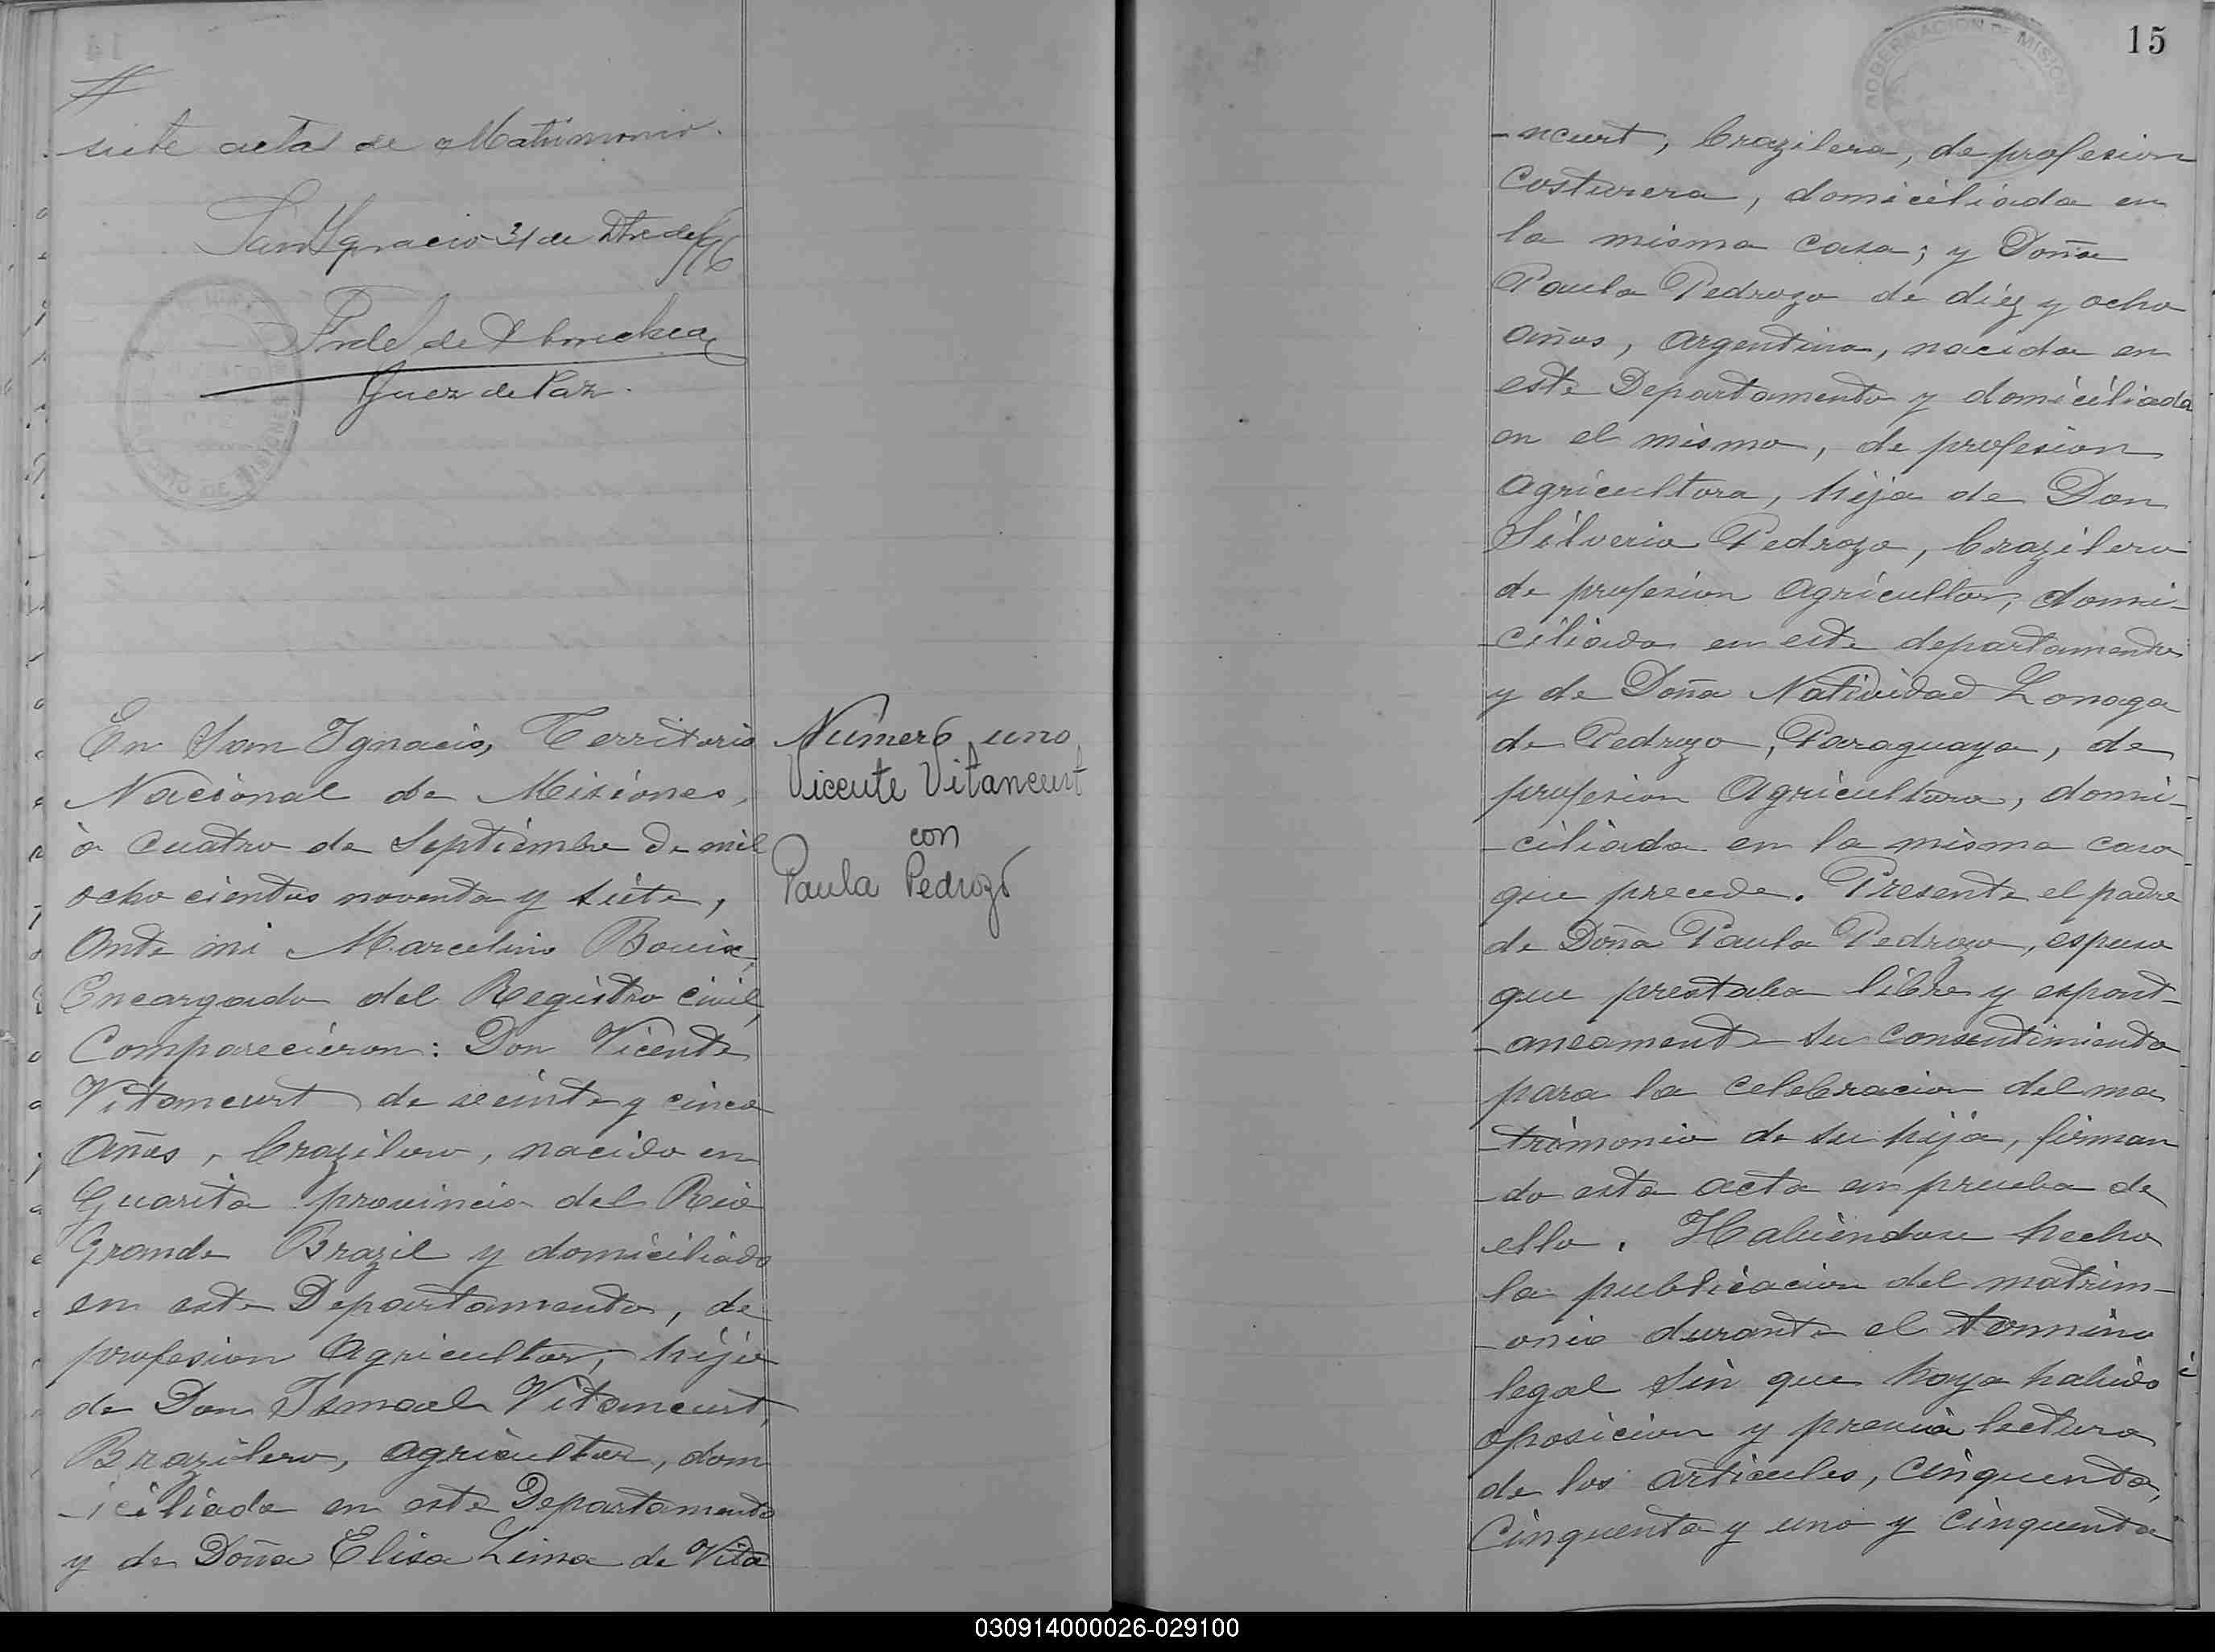 siete actas de Matrimonio.
San Ygnacio 31 de Dbre de 96
Juez de Paz.
En San Ignacio, Territorio
Nacional de Misiones,
à cuatro de Septiembre de mil
ocho cientos noventa y siete,
Ante mi Marcelino Bouix,
Encargado del Registro civil,
Comparecieron: Don Vicente
Vitancurt de veinte y cinco
Años, brazilero, nacido en
Guarita provincia del Rio
Grande Brazil y domiciliado
en este Departamento, de
profesion Agricultor, hijo
de Don Ismael Vitancurt,
Brazilero, agricultor, dom
-iciliado en este Departamento
y de Doña Elisa Lima de Vita
Número uno
Vicente Vitancurt
con
Paula Pedrozo
15
GOBERNACION DE MISIONES
-ncurt, brazilera, de profesion
Costurera, domiciliada en
la misma casa; y Doña
Paula Pedrozo de diez y ocho
años, argentina, nacida en
este Departamento y domiciliada
en el mismo, de profesion
agricultora, hija de Don
Silverio Pedrozo, brazilero
de profesion agricultor, domi-
-ciliado en este departamento
y de Doña Natividad Lonaga
de Pedrozo, Paraguaya, de
profesion Agricultora, domi-
-ciliada en la misma casa
que precede. Presente el padre
de Doña Paula Pedrozo, espuso
que prestaba libre y espont-
-aneamente su consentimiento
para la celebracion del ma
-trimonio de su hija, firman
-do esta acta en prueba de
ello. Habiendose hecho
la publicacion del matrim-
-onio durante el termino
legal sin que haya habido
oposicion y previa lectura
de los articulos, cinquenta,
Cinquenta y uno y cinquenta
030914000026-029100